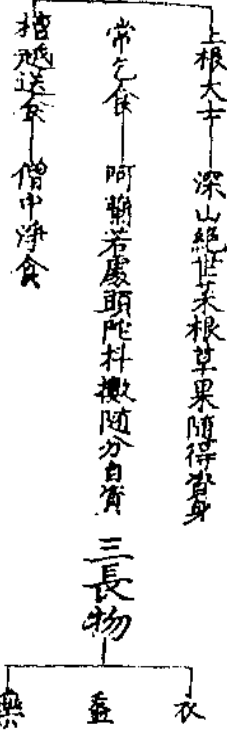 上根大士 深山絶世菜根草果隨得資身
常乞食 阿蘭若處頭陀抖擻隨分自資
檀越送食 僧中淨食
三長物
衣
藥